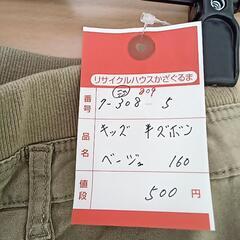 リサイクルハウスかざぐるま
809
番号 7-308-5
品名 キッズ 半ズボン
ベージュ 160
値段 500円